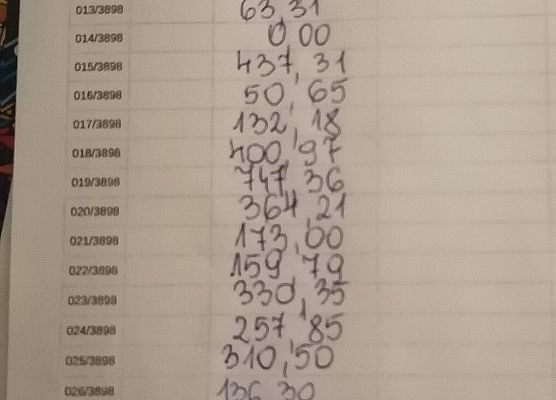 013/3898 63,31
014/3898 0,00
015/3898 437,31
016/3898 50,65
017/3898 132,18
018/3898 400,97
019/3898 747,36
020/3898 364,21
021/3898 173,00
022/3898 159,79
023/3898 330,35
024/3898 257,85
025/3898 310,50
026/3898 136,30